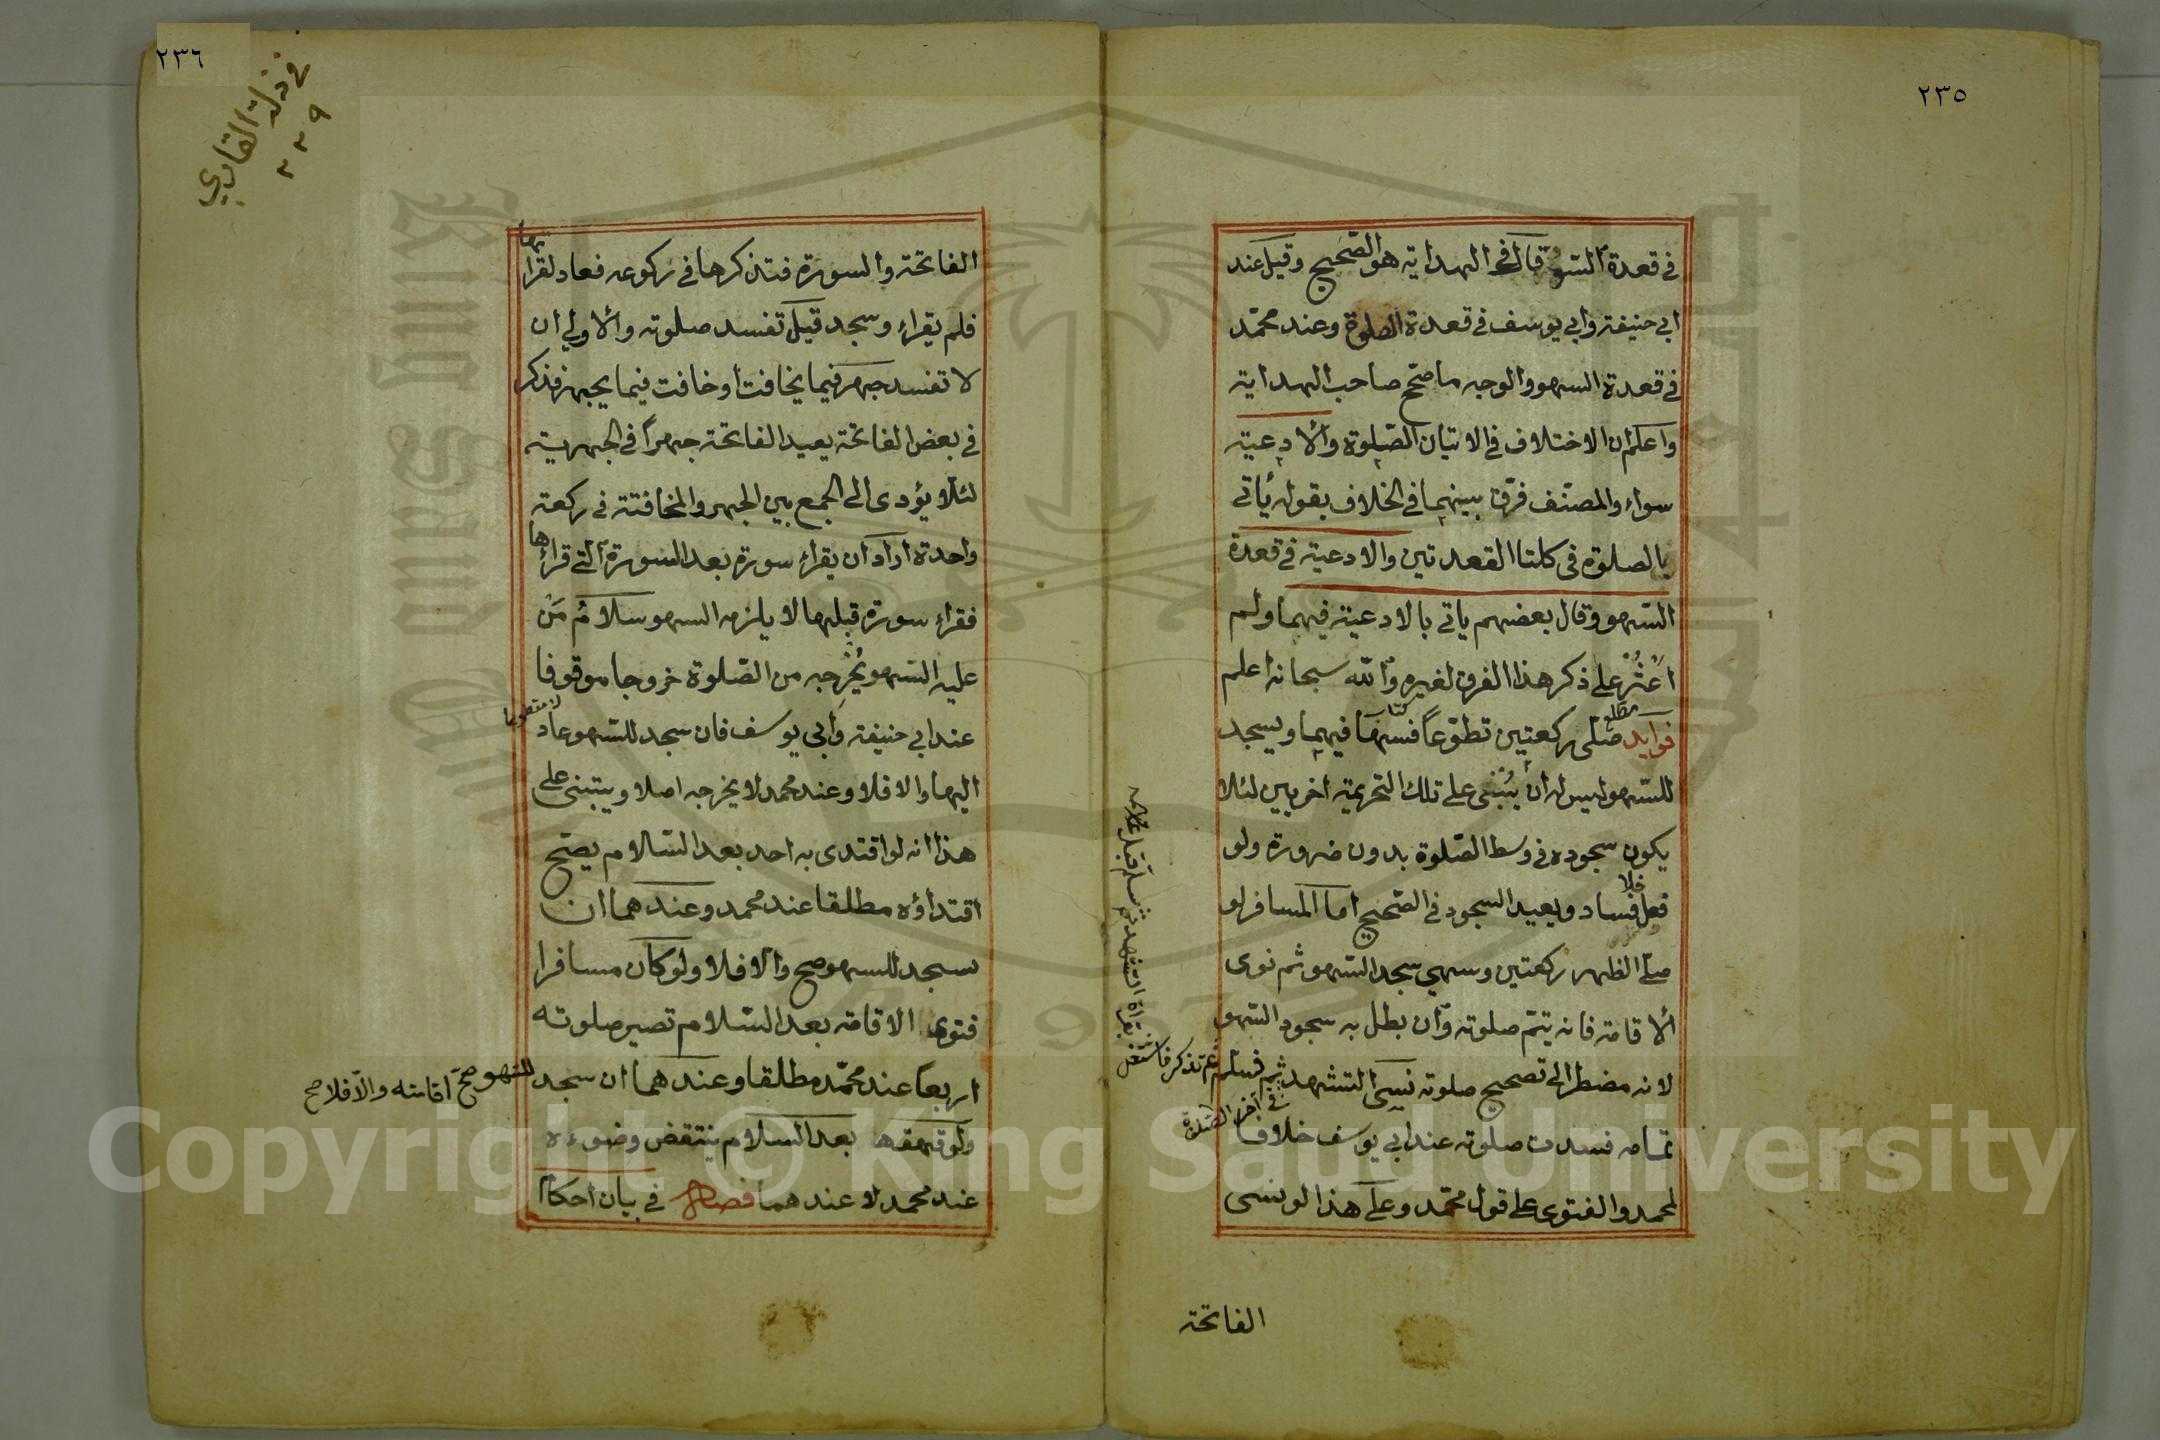 ٢٣٥
في قعدة السهو قال في الهداية هو الصّحيح وقيل عند
ابي حنيفة وابي يوسف في قعدة الصلوة وعند محمّد
في قعدة السهو والوجه ما صحّح صاحب الهداية
واعلم ان الاختلاف في الاتيان الصّلوة والادعية
سواء والمصنّف فرّق بينهما في الخلاف بقوله يأتي
بالصلوة في كلتا القعدتين والادعية في قعدة
السّهو وقال بعضهم ياتي بالادعية فيهما ولم
اَعْثُرْ على ذكر هذا الفرق لغيره واللّه سبحانه اعلم
فوايد صلّى ركعتين تطوّعاً فسها فيهما ويسجد
للسّهو ليس له ان يَبْني على تلك التحريمة اخريين لئلا
يكون سجوده في وسط الصّلوة بدون ضرورة ولو
فعل فلا فساد ويعيد السجود في الصّحيح اما المسافر لو
صلّى الظهر ركعتين وسهى سجد السّهو ثم نوى
الاقامة فانه يتمّ صلوته وان بطل به سجود السّهو
لانه مضطر الى تصحيح صلوته نسي التشهد في آخر الصّلوة فسلّم ثم تذكر فاشتغل
بقراءة التشهد ثم سلّم قبل
تمامه فسدت صلوته عند ابي يوسف خلافاً
لمحمد والفتوى على قول محمّد وعلى هذا لو نسى
الفاتحة
٢٣٦
في زلة القاري
٢٣٩
الفاتحة والسورة فتذكرها في ركوعه فعاد لقراءتها
فلم يقراء وسجد قيل تفسد صلوته والاولى ان
لا تفسد جهر فيما يخافت او خافت فيما يجهر فذكر
في بعض الفاتحة يعيد الفاتحة جهراً في الجهرية
لئلا يؤدى الى الجمع بين الجهر والمخافتة في ركعة
واحدة اراد ان يقراء سورة بعد السورة التي قراءها
فقراء سورة قبلها لا يلزمه السهو سلامُ مَنْ
عليه السّهو يُخْرِجه من الصّلوة خروجا موقوفا لا مقطوعا
عند ابي حنيفة وابي يوسف فان سجد للسّهو عاد
اليها والا فلا وعند محمد لا يخرجه اصلا ويبتنى على
هذا انه لو اقتدى به احد بعد السّلام يصحّ
اقتداؤه مطلقا عند محمد وعندهما ان
سجد للسهو صح والا فلا ولو كان مسافرا
فنوى الاقامة بعد السّلام تصير صلوته
اربعاً عند محمّد مطلقا وعندهما ان سجد للسّهو صحّ اقامته والاّ فلا صح
ولو قهقه بعد السلام ينتقض وضوءه
عند محمد لا عندهما فصل في بيان احكام
Copyright © King Saud University